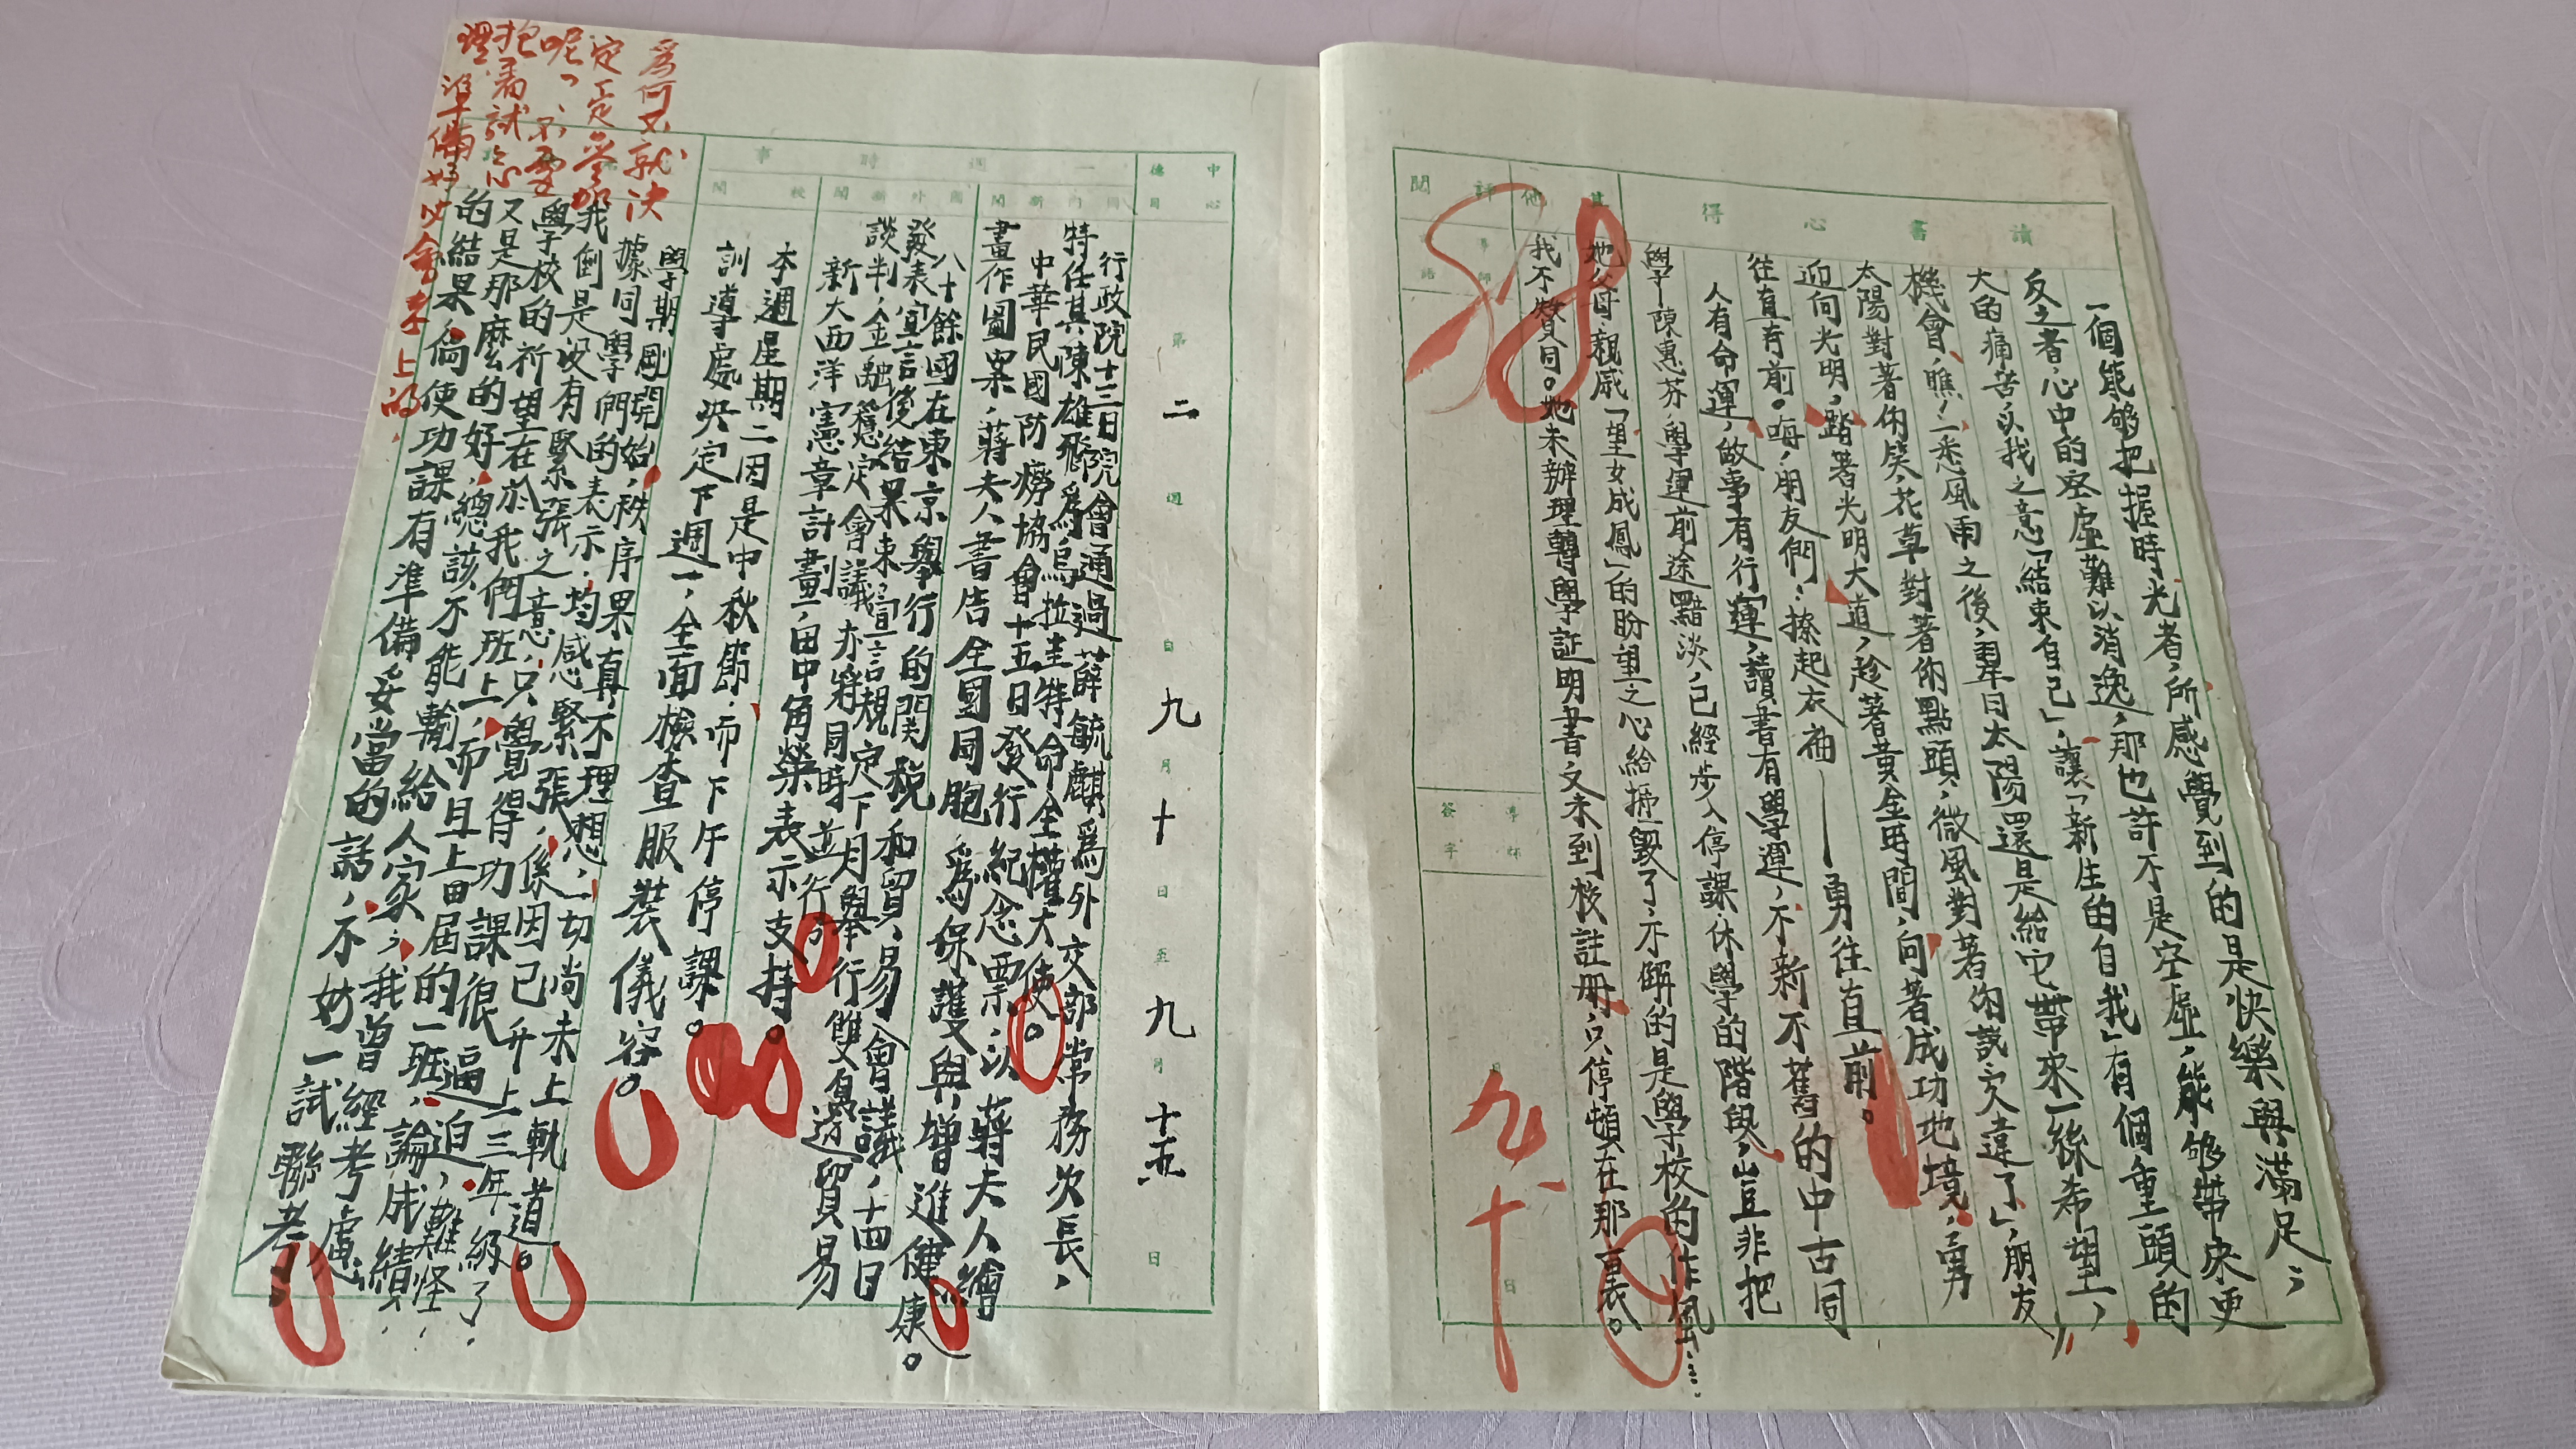 讀書心得
一個能够把握時光者，所感覺到的是快樂與滿足；
反之者，心中的空虛難以消逸，那也許不是空虛，能够帶來更
大的痛苦，以我之意「結束自己」，讓「新生的自我」有個重頭的
機會，瞧，一悉風雨之後，翌日太陽還是給它帶來一絲希望，
太陽對著你笑，花草對著你點頭，微風對著你說「久違了」，朋友
迎向光明，踏著光明大道，趁著黃金時間，向著成功地境，勇
往直前。嗨，朋友們：撩起衣袖——勇往直前。
人有命運，做事有行運，讀書有學運，不新不舊的中古同
學—陳惠芬，學運前途黯淡，已經步入停課、休學的階段，豈非把
她父母親感「望女成鳳」的盼望之心給摧毀了，不解的是學校的作風……
其他
我不贊同。她未辦理轉學証明書文未到校註冊，只停頓在那裏。
評閱
導師
評語
導師
簽字
月
日
58
九
十
中心德目
第二週 自九月十日至九月十五日
一週時事
國內新聞
行政院十三日院會通過薛毓麒為外交部常務次長，
特任其陳雄飛為烏拉圭特命全權大使。
中華民國防癆協會十五日發行紀念票，以蔣夫人繪
畫作圖案，蔣夫人書告全國同胞，為保護與增進健康。
國外新聞
八十餘國在東京舉行的關稅和貿易會議，十四日
發表宣言後結果束，宣言規定下月舉行雙邊貿易
談判，金融穩定會議亦將同時並行。
新大西洋憲章計劃，田中角榮表示支持。
校聞
本週星期二因是中秋節，而下午停課。
訓導處決定下週一，全面檢查服裝儀容。
學期剛開始，秩序果真不理想，一切尚未上軌道。
據同學們的表示，均感緊張，係因已升上三年級了，
我倒是沒有緊張之意，只覺得功課很逼迫，難怪，
學校的祈望在於我們班上，而且上届的一班，論成績，
又是那麼的好，總該不能輸給人家，我曾經考慮
的結果，倘使功課有準備妥當的話，不妨一試聯考。
為何又就決
定一定參加
呢，不要
抱着試試心
理，準備好必會考上的。